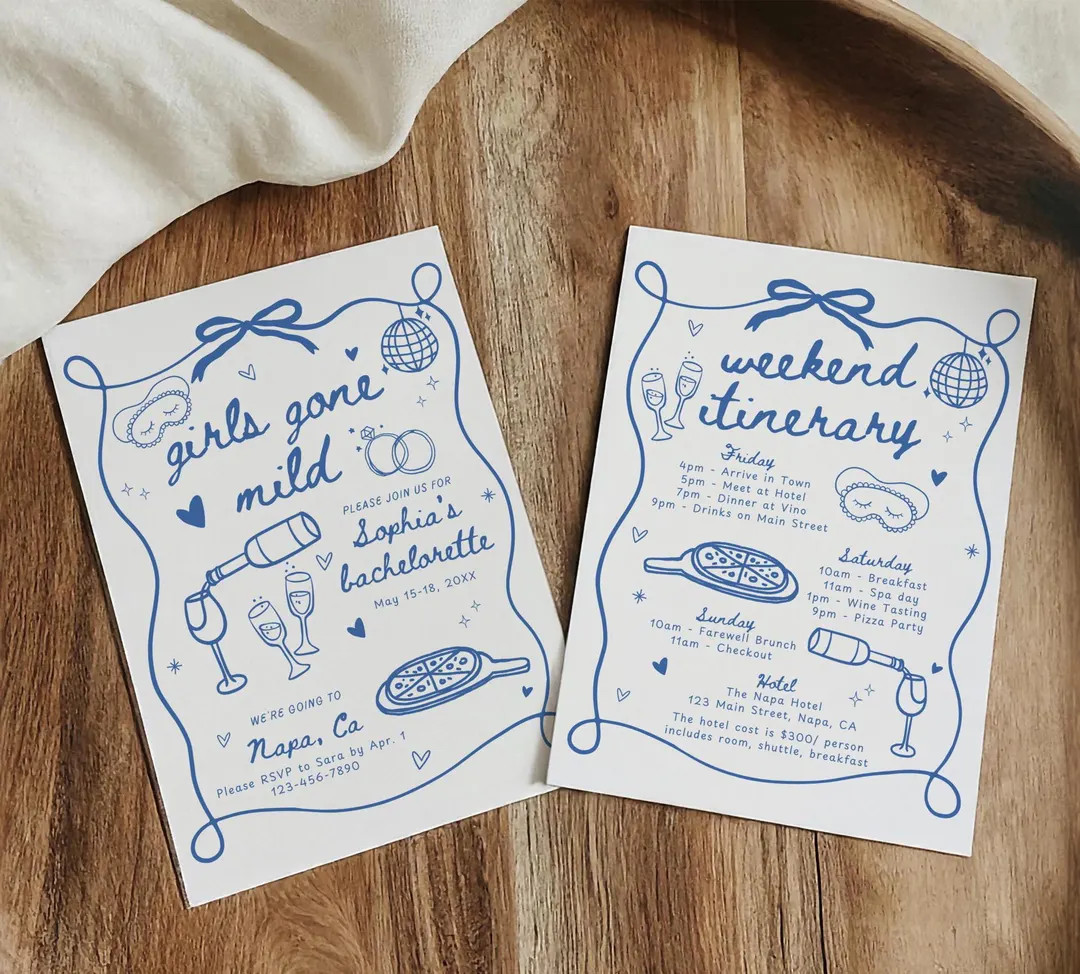 girls gone
mild
PLEASE JOIN US FOR
Sophia's
bachelorette
May 15-18, 20XX
WE'RE GOING TO
Napa, Ca
Please RSVP to Sara by Apr. 1
123-456-7890
weekend
itinerary
Friday
4pm - Arrive in Town
5pm - Meet at Hotel
7pm - Dinner at Vino
9pm - Drinks on Main Street
Saturday
10am - Breakfast
11am - Spa day
1pm - Wine Tasting
9pm - Pizza Party
Sunday
10am - Farewell Brunch
11am - Checkout
Hotel
The Napa Hotel
123 Main Street, Napa, CA
The hotel cost is $300/ person
includes room, shuttle, breakfast